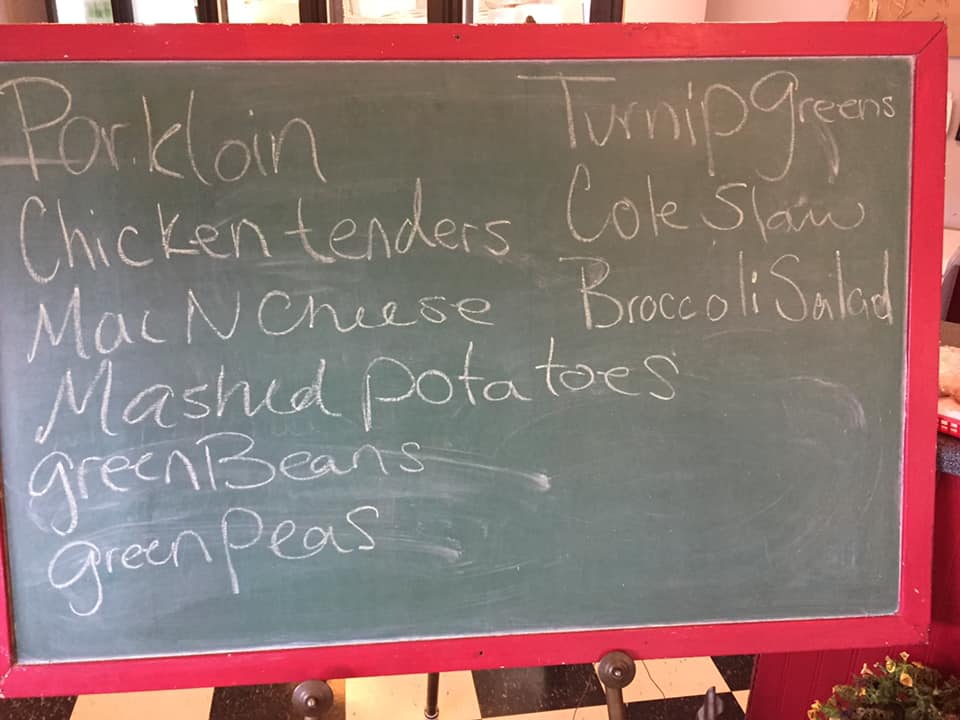 Porkloin
Chicken tenders
Mac N Cheese
Mashed potatoes
green Beans
green Peas
Turnip greens
Cole Slaw
Broccoli Salad